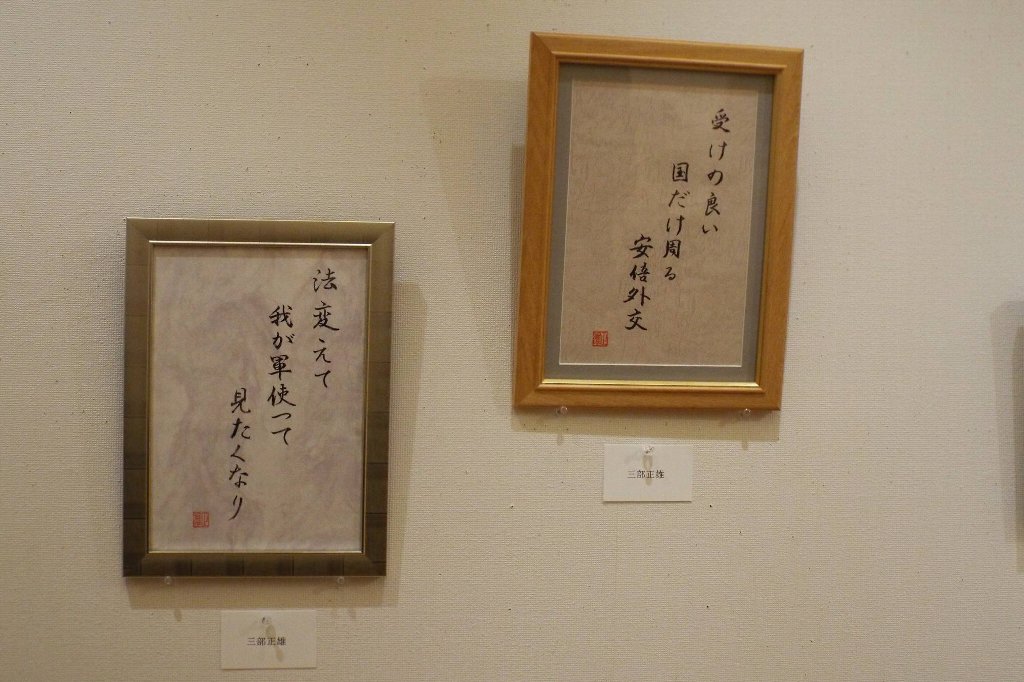 受けの良い
国だけ周る
安倍外交
三部正雄
法変えて
我が軍使って
見たくなり
三部正雄